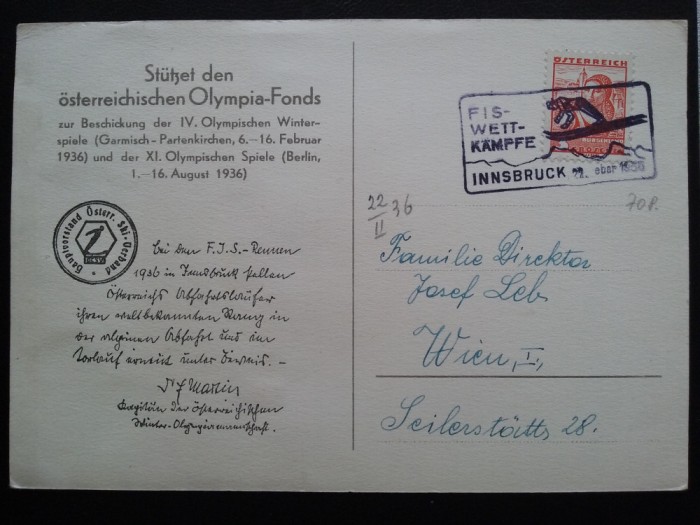 Stützet den
österreichischen Olympia-Fonds
zur Beschickung der IV. Olympischen Winter-
spiele (Garmisch-Partenkirchen, 6.—16. Februar
1936) und der XI. Olympischen Spiele (Berlin,
1.—16. August 1936)
Hauptvorstand Österr. Ski-Verband
Bei den F.I.S.-Rennen
1936 in Innsbruck stellen
Österreichs Abfahrtsläufer
ihren weltbekannten Rang in
der alpinen Abfahrt und im
Torlauf erneut unter Beweis. —
Dr F Martin
Kapitän der Österreichischen
Winter-Olympiamannschaft.
ÖSTERREICH
FIS-
WETT-
KÄMPFE
INNSBRUCK 22. 1936
22
II 36
70 P.
Familie Direktor
Josef Leb
Wien, I.,
Seilerstätte 28.